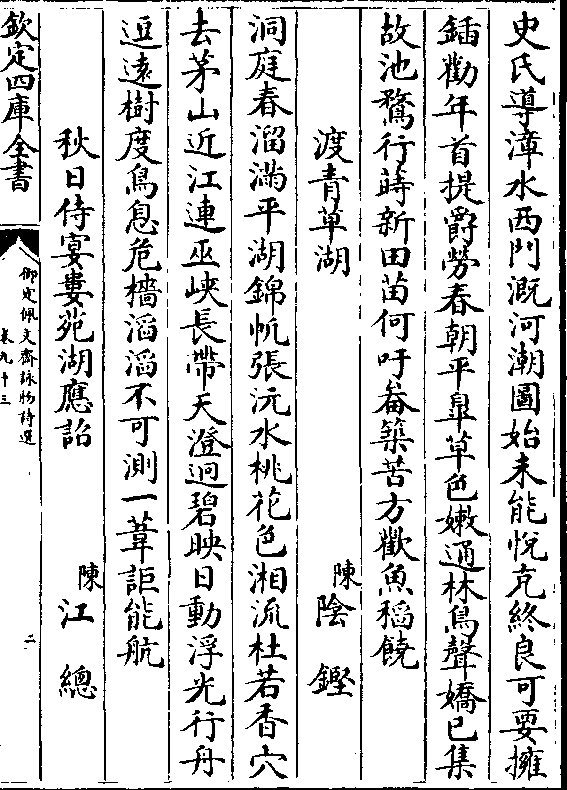 史氏導漳水西門溉河潮圖始未能悅克終良可要擁
鍤勸年首提爵勞春朝平臯草色嫩通林鳥聲嬌已集
故池鶩行蒔新田苗何吁畚築苦方歡魚稻饒
渡青草湖　陳陰鏗
洞庭春溜滿平湖錦帆張沅水桃花色湘流杜若香穴
去茅山近江連巫峽長帶天澄迥碧映日動浮光行舟
逗遠樹度鳥息危檣滔滔不可測一葦詎能航
秋日侍宴婁苑湖應詔　陳江總
欽定四庫全書
御定佩文齋詠物詩選
卷九十三
二